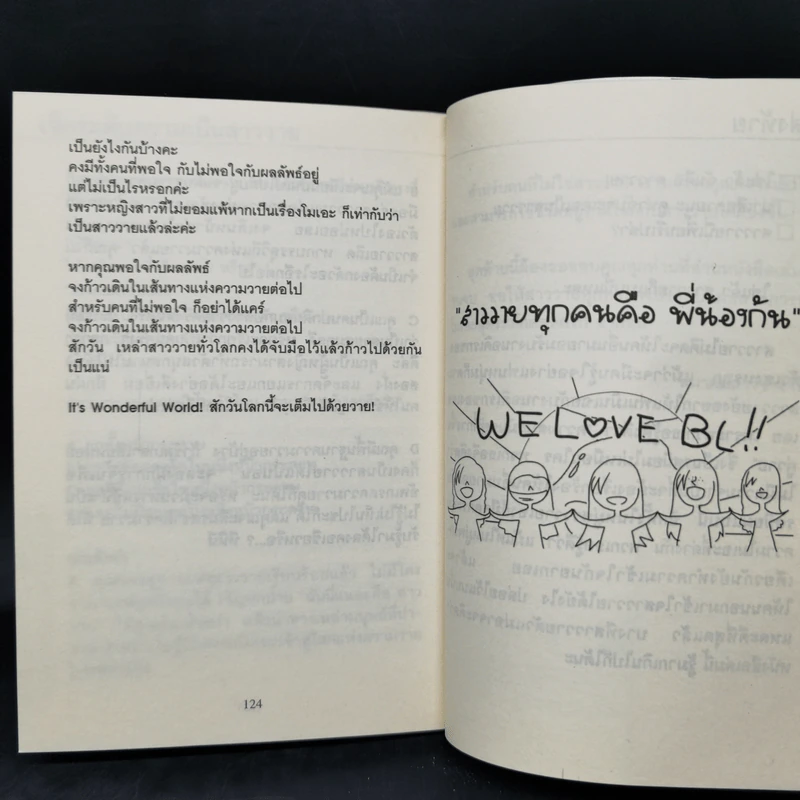 เป็นยังไงกันบ้างคะ
คงมีทั้งคนที่พอใจ กับไม่พอใจกับผลลัพธ์อยู่
แต่ไม่เป็นไรหรอกค่ะ
เพราะหญิงสาวที่ไม่ยอมแพ้หากเป็นเรื่องโมเอะ ก็เท่ากับว่า
เป็นสาววายแล้วล่ะค่ะ
หากคุณพอใจกับผลลัพธ์
จงก้าวเดินในเส้นทางแห่งความวายต่อไป
สำหรับคนที่ไม่พอใจ ก็อย่าได้แคร์
จงก้าวเดินในเส้นทางแห่งความวายต่อไป
สักวัน เหล่าสาววายทั่วโลกคงได้จับมือไว้แล้วก้าวไปด้วยกัน
เป็นแน่
It's Wonderful World! สักวันโลกนี้จะเต็มไปด้วยวาย!
124
"สาววายทุกคนคือ พี่น้องกัน"
WE LOVE BL!!